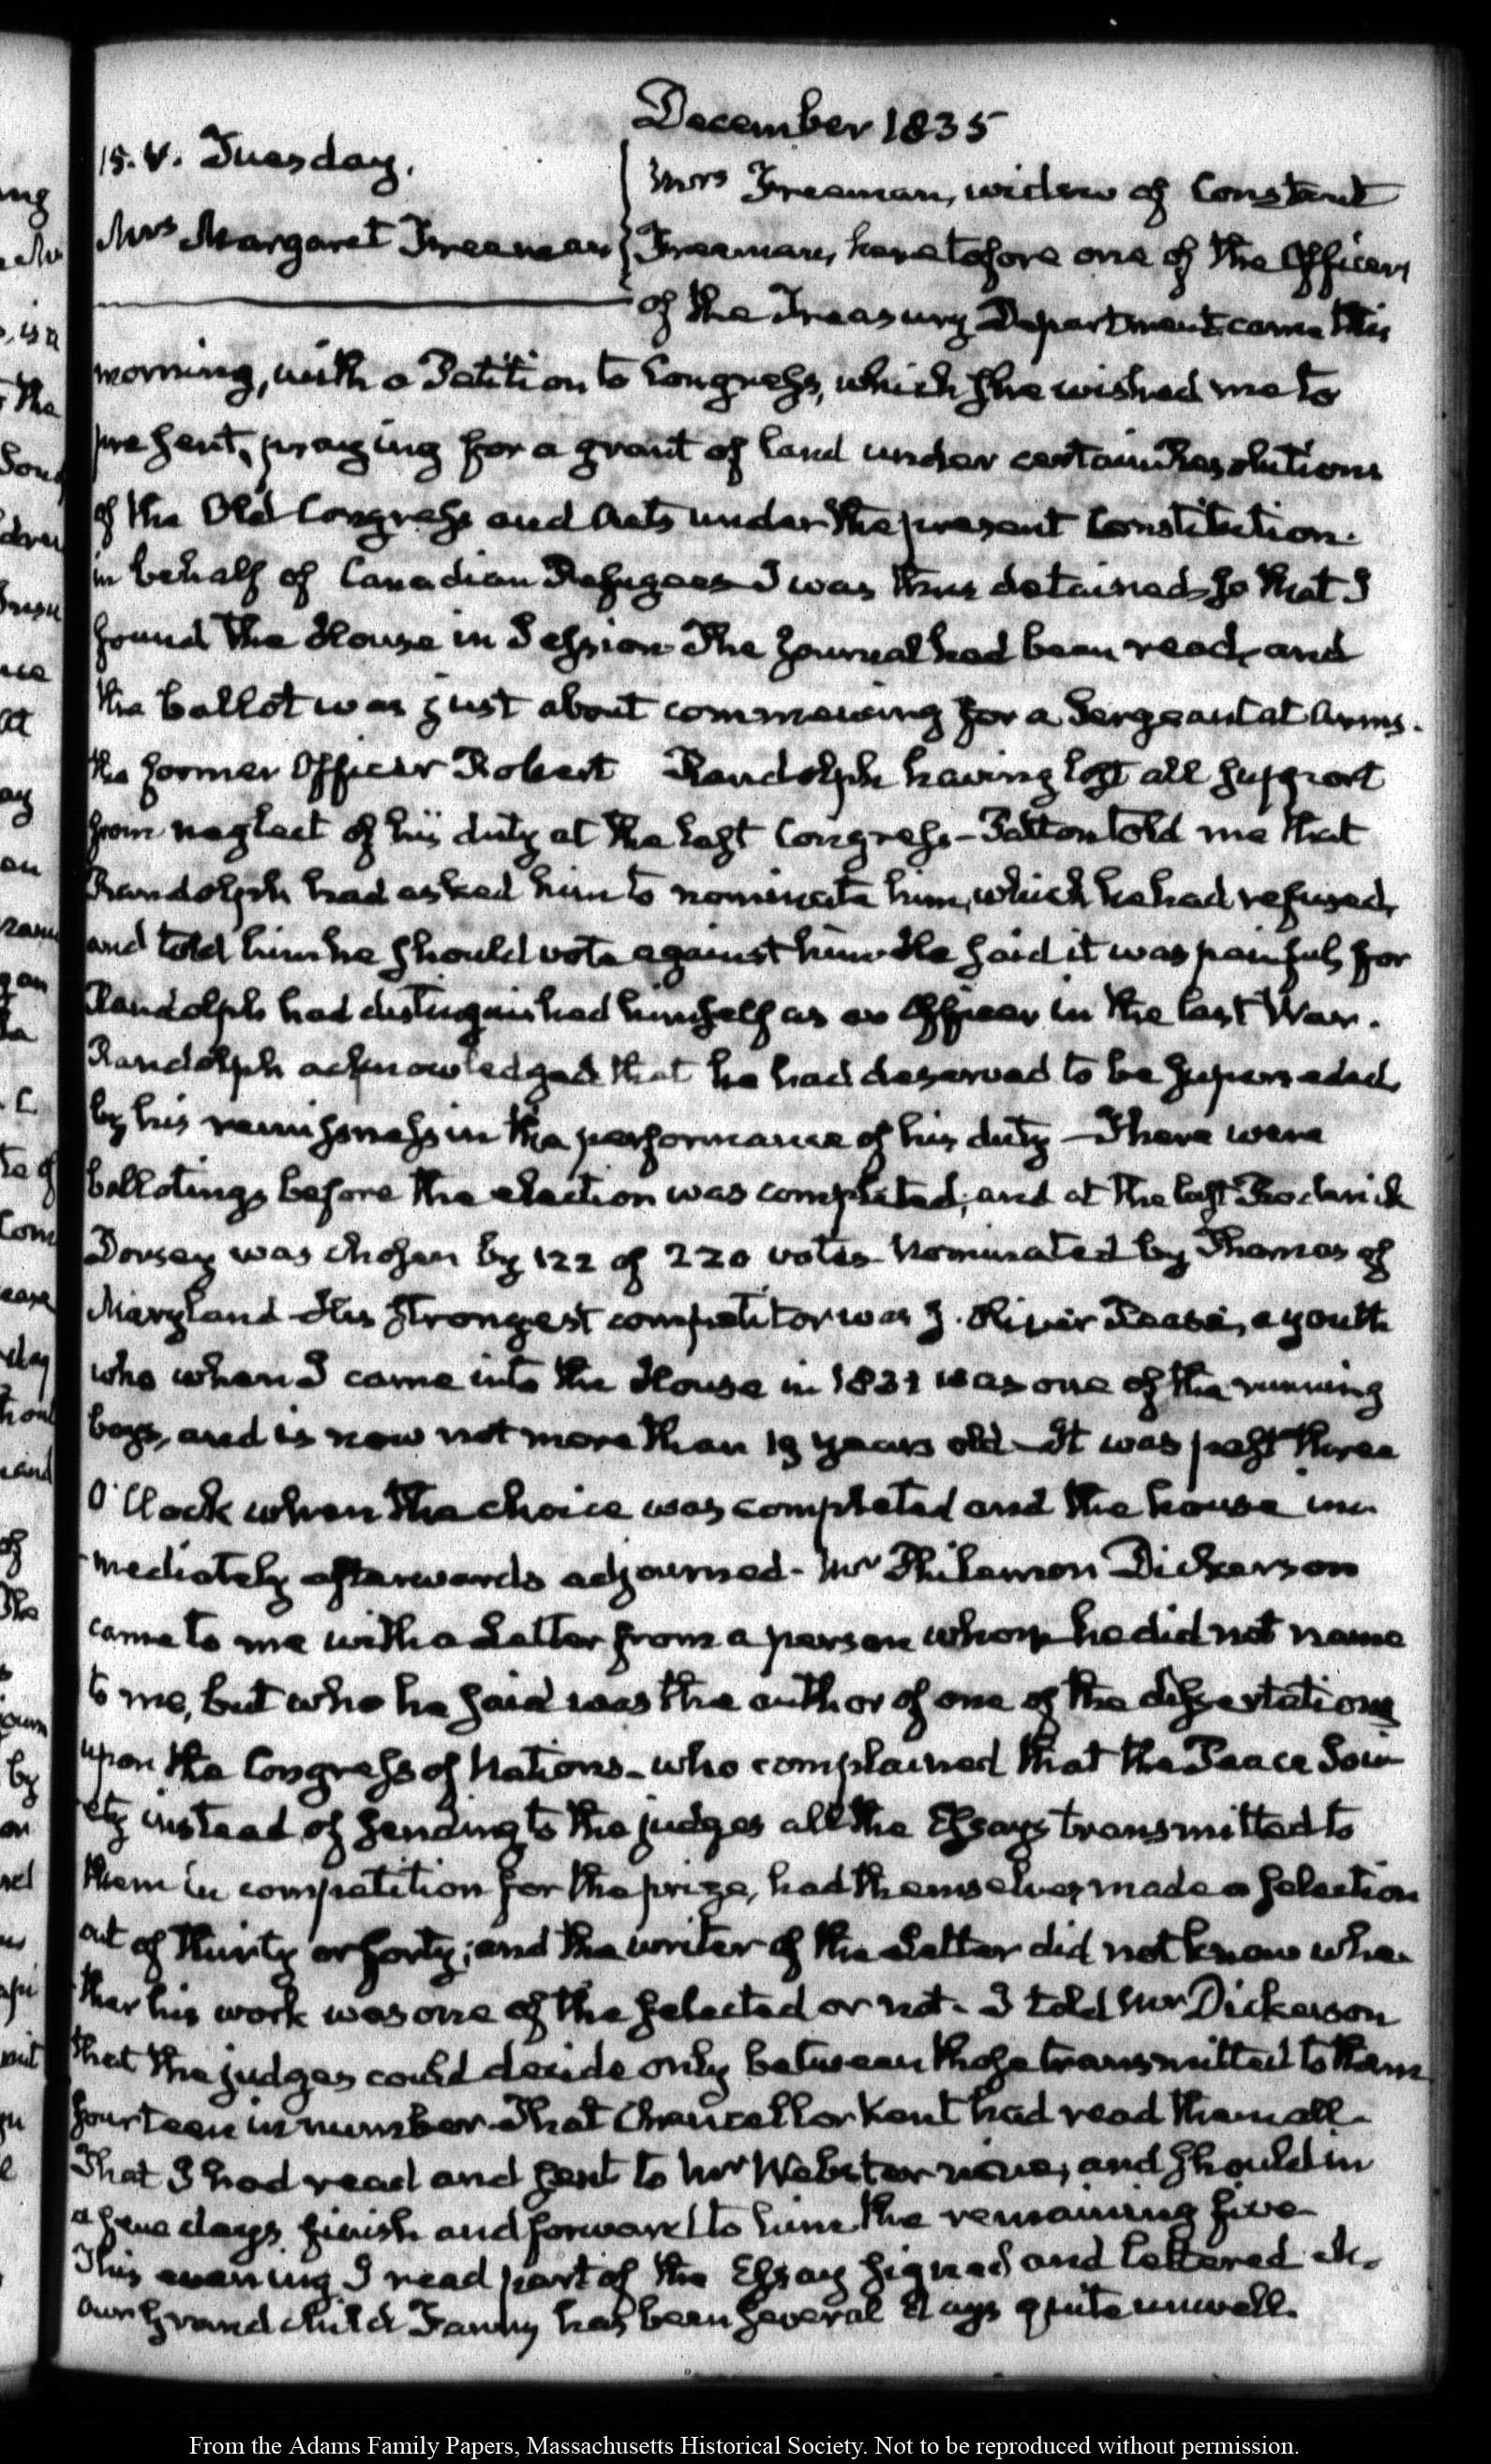 December 1835
15. V. Tuesday.
Mrs Margaret Freeman
Mrs Freeman, widow of Constant
Freeman, heretofore one of the Officers
of the Treasury Department came this
morning, with a Petition to Congress, which she wished me to
present, praying for a grant of land under certain Resolutions
of the Old Congress and Acts under the present Constitution.
in behalf of Canadian Refugees I was thus detained so that I
found the House in Session The Journal had been read, and
the ballot was just about commencing for a Sergeant at Arms.
the former Officer Robert Randolph having lost all support
from neglect of his duty at the last Congress – Patton told me that
Randolph had asked him to nominate him, which he had refused,
and told him he should vote against him He said it was painful, for
Randolph had distinguished himself as an Officer in the last War.
Randolph acknowledged that he had deserved to be superseded,
by his remissness in the performance of his duty – There were
ballotings before the election was completed; and at the last Roderick
Dorsey was chosen by 122 of 220 votes. Nominated by Thomas of
Maryland – His strongest competitor was J. Oliver Pease, a youth
who when I came into the House in 1831 was one of the running
boys, and is now not more than 19 years old – It was past three
O'Clock when the choice was completed and the house im-
mediately afterwards adjourned – Mr Philemon Dickerson
came to me with a Letter from a person whom he did not name
to me, but who he said was the author of one of the dissertations
upon the Congress of Nations – who complained that the Peace Soci-
ety instead of sending to the judges all the Essays transmitted to
them in competition for the prize, had themselves made a selection
out of thirty or forty; and the writer of the Letter did not know whe-
ther his work was one of the selected or not. I told Mr Dickerson
that the judges could decide only between those transmitted to them
fourteen in number – That Chancellor Kent had read them all.
That I had read and sent to Mr Webster nine, and should in
a few days finish and forward to him the remaining five
This evening I read part of the Essay signed and lettered
Our Grandchild Fanny has been several days quite unwell.
From the Adams Family Papers, Massachusetts Historical Society. Not to be reproduced without permission.